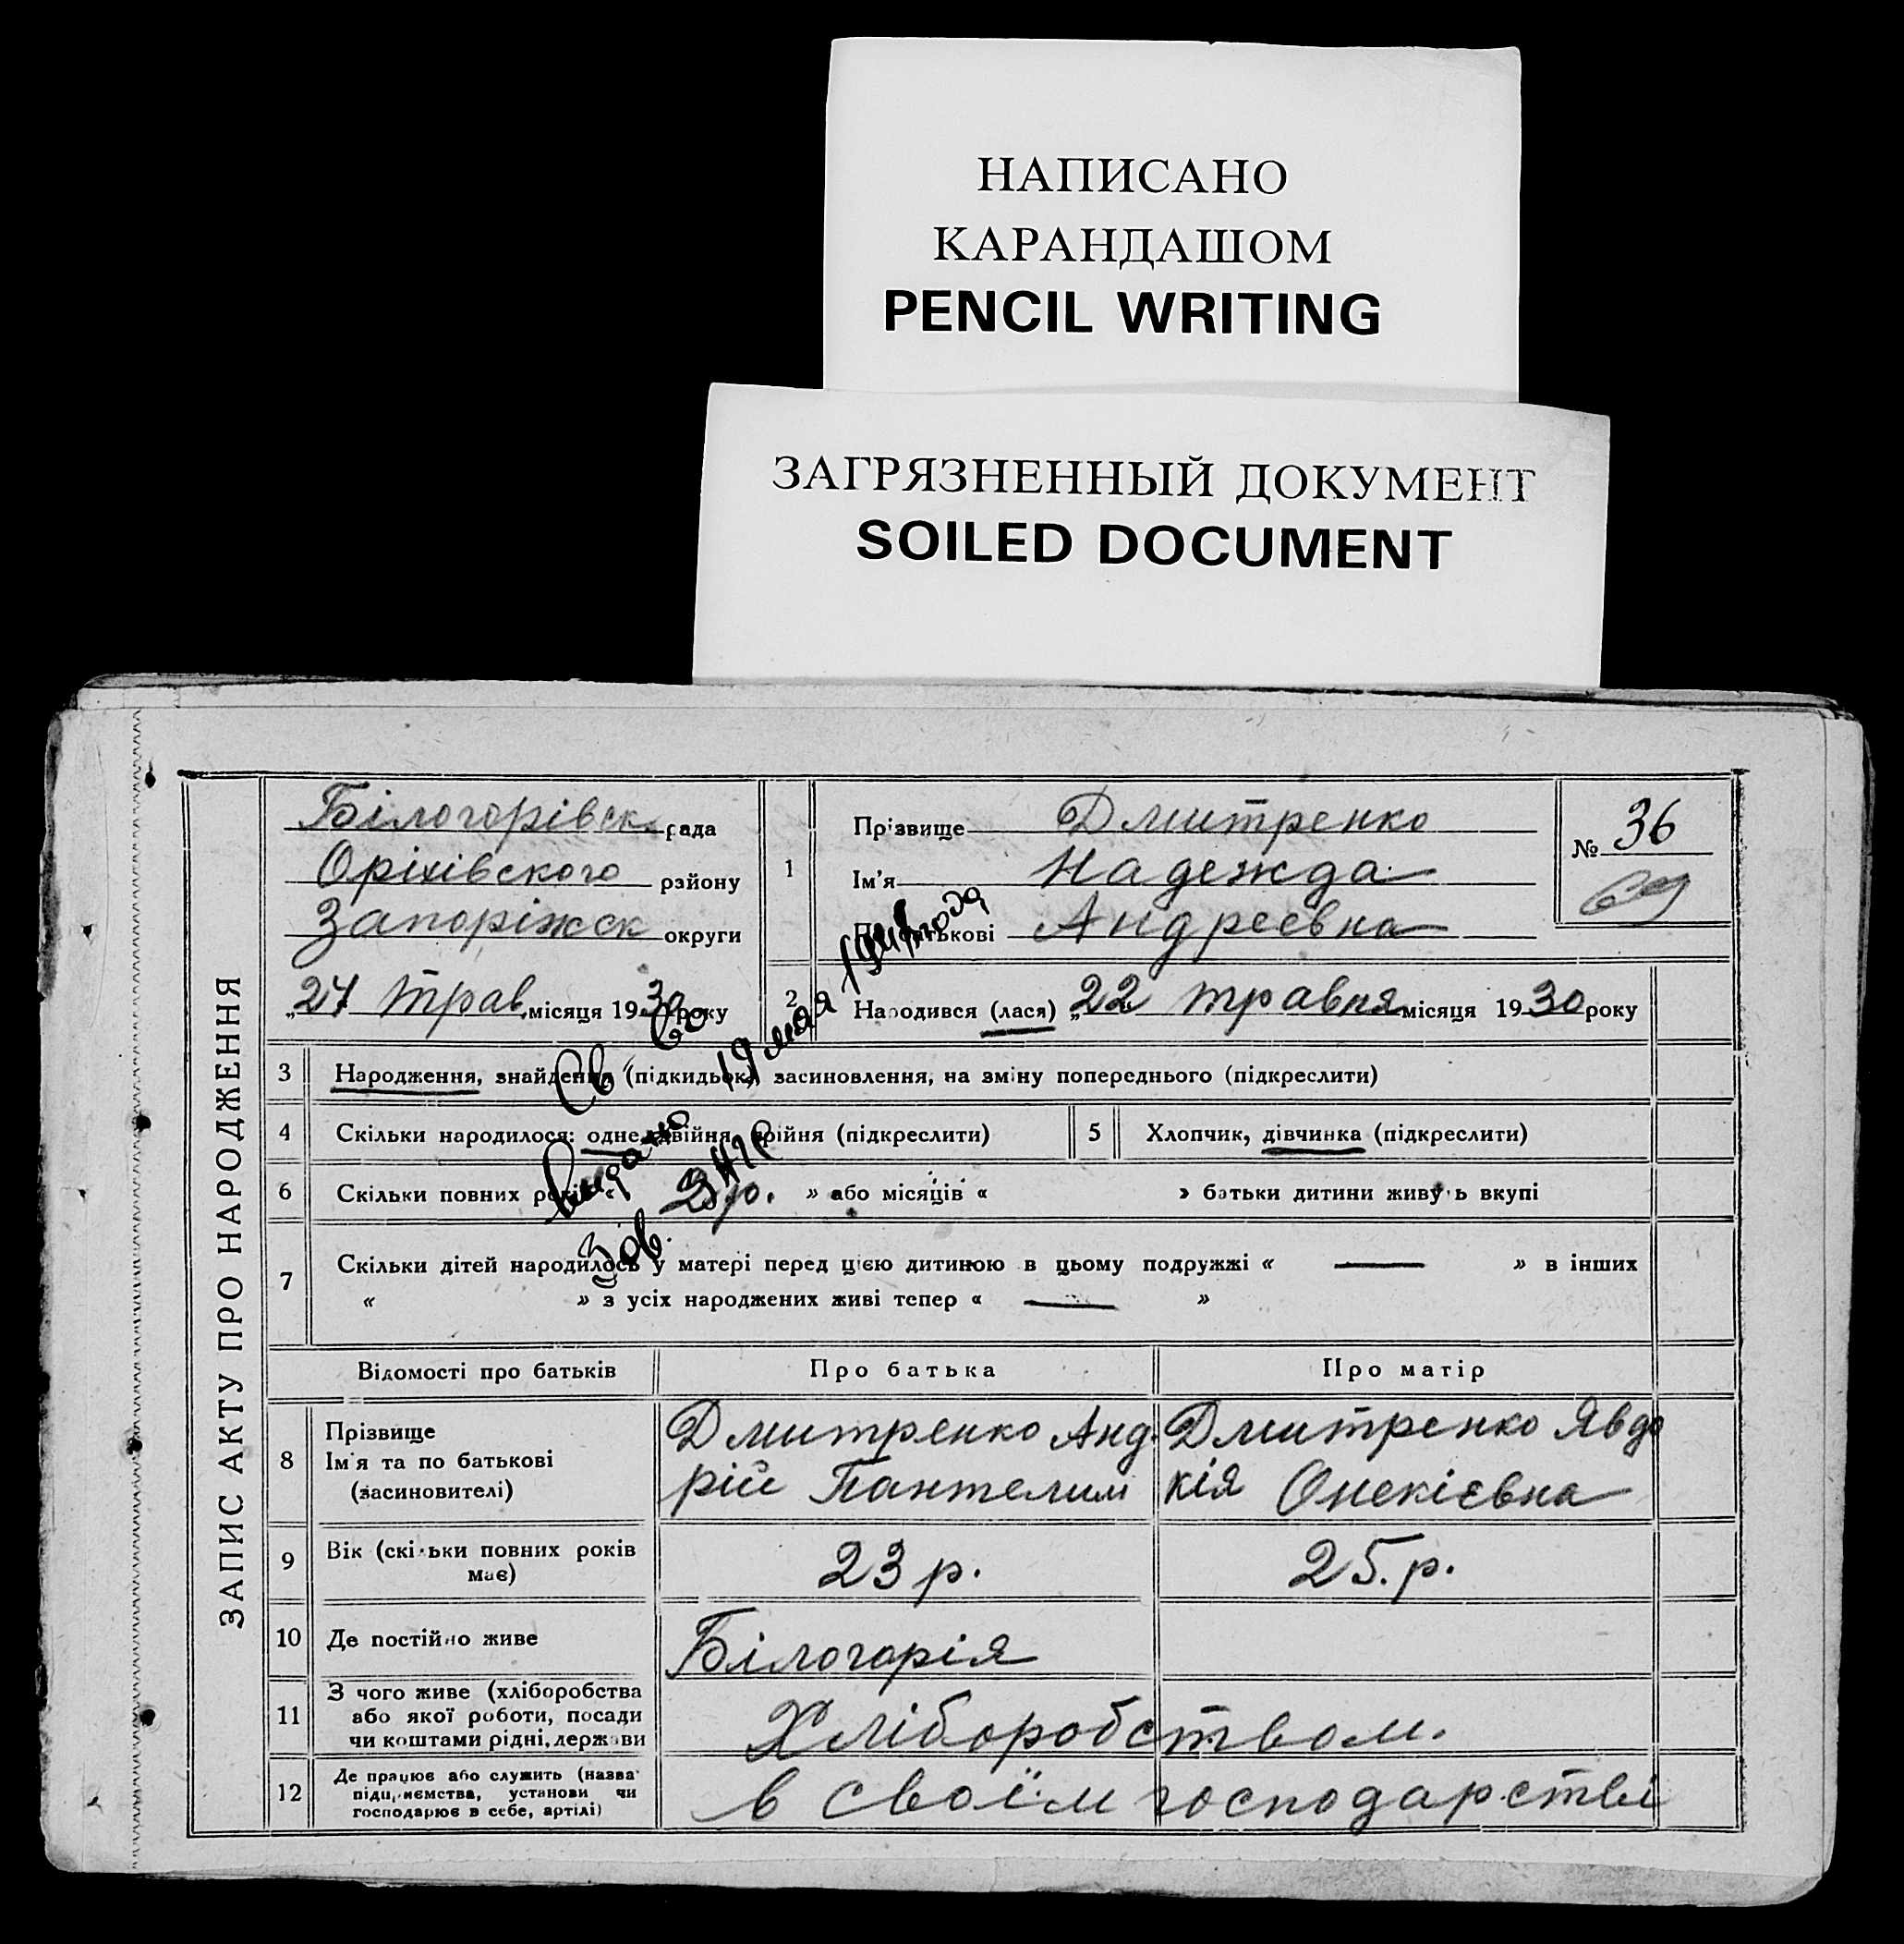 НАПИСАНО
КАРАНДАШОМ
PENCIL WRITING
ЗАГРЯЗНЕННЫЙ ДОКУМЕНТ
SOILED DOCUMENT
ЗАПИС АКТУ ПРО НАРОДЖЕННЯ
Білогорівск. рада
Оріхівского району
Запоріжск округи
„27 трав. місяця 1930 року
1
Прізвище Дмитренко
Ім'я Надежда
По батькові Андреевна
№ 36
69
2 Народився (лася) „22 травня місяця 1930 року
3 Народження, знайдення (підкидьок) засиновлення, на зміну попереднього (підкреслити)
4 Скільки народилося: одне, двійня, трійня (підкреслити)
5 Хлопчик, дівчинка (підкреслити)
6 Скільки повних років « 3 р. » або місяців « » батьки дитини живуть вкупі
7 Скільки дітей народилось у матері перед цією дитиною в цьому подружжі « — » в інших
« » з усіх народжених живі тепер « — »
Видано Св во
19 мая
Зав.
Відомості про батьків Про батька Про матір
8 Прізвище
Ім'я та по батькові
(засиновителі)
Дмитренко Анд-
рій Пантелим
Дмитренко Явдо
кія Онекієвна
9 Вік (скільки повних років
має)
23 р. 25. р.
10 Де постійно живе Білогорія
11 З чого живе (хліборобства
або якої роботи, посади
чи коштами рідні, держави
Хліборобством.
12 Де працює або служить (назва
підприємства, установи чи
господарює в себе, артілі)
в своїм господарстві